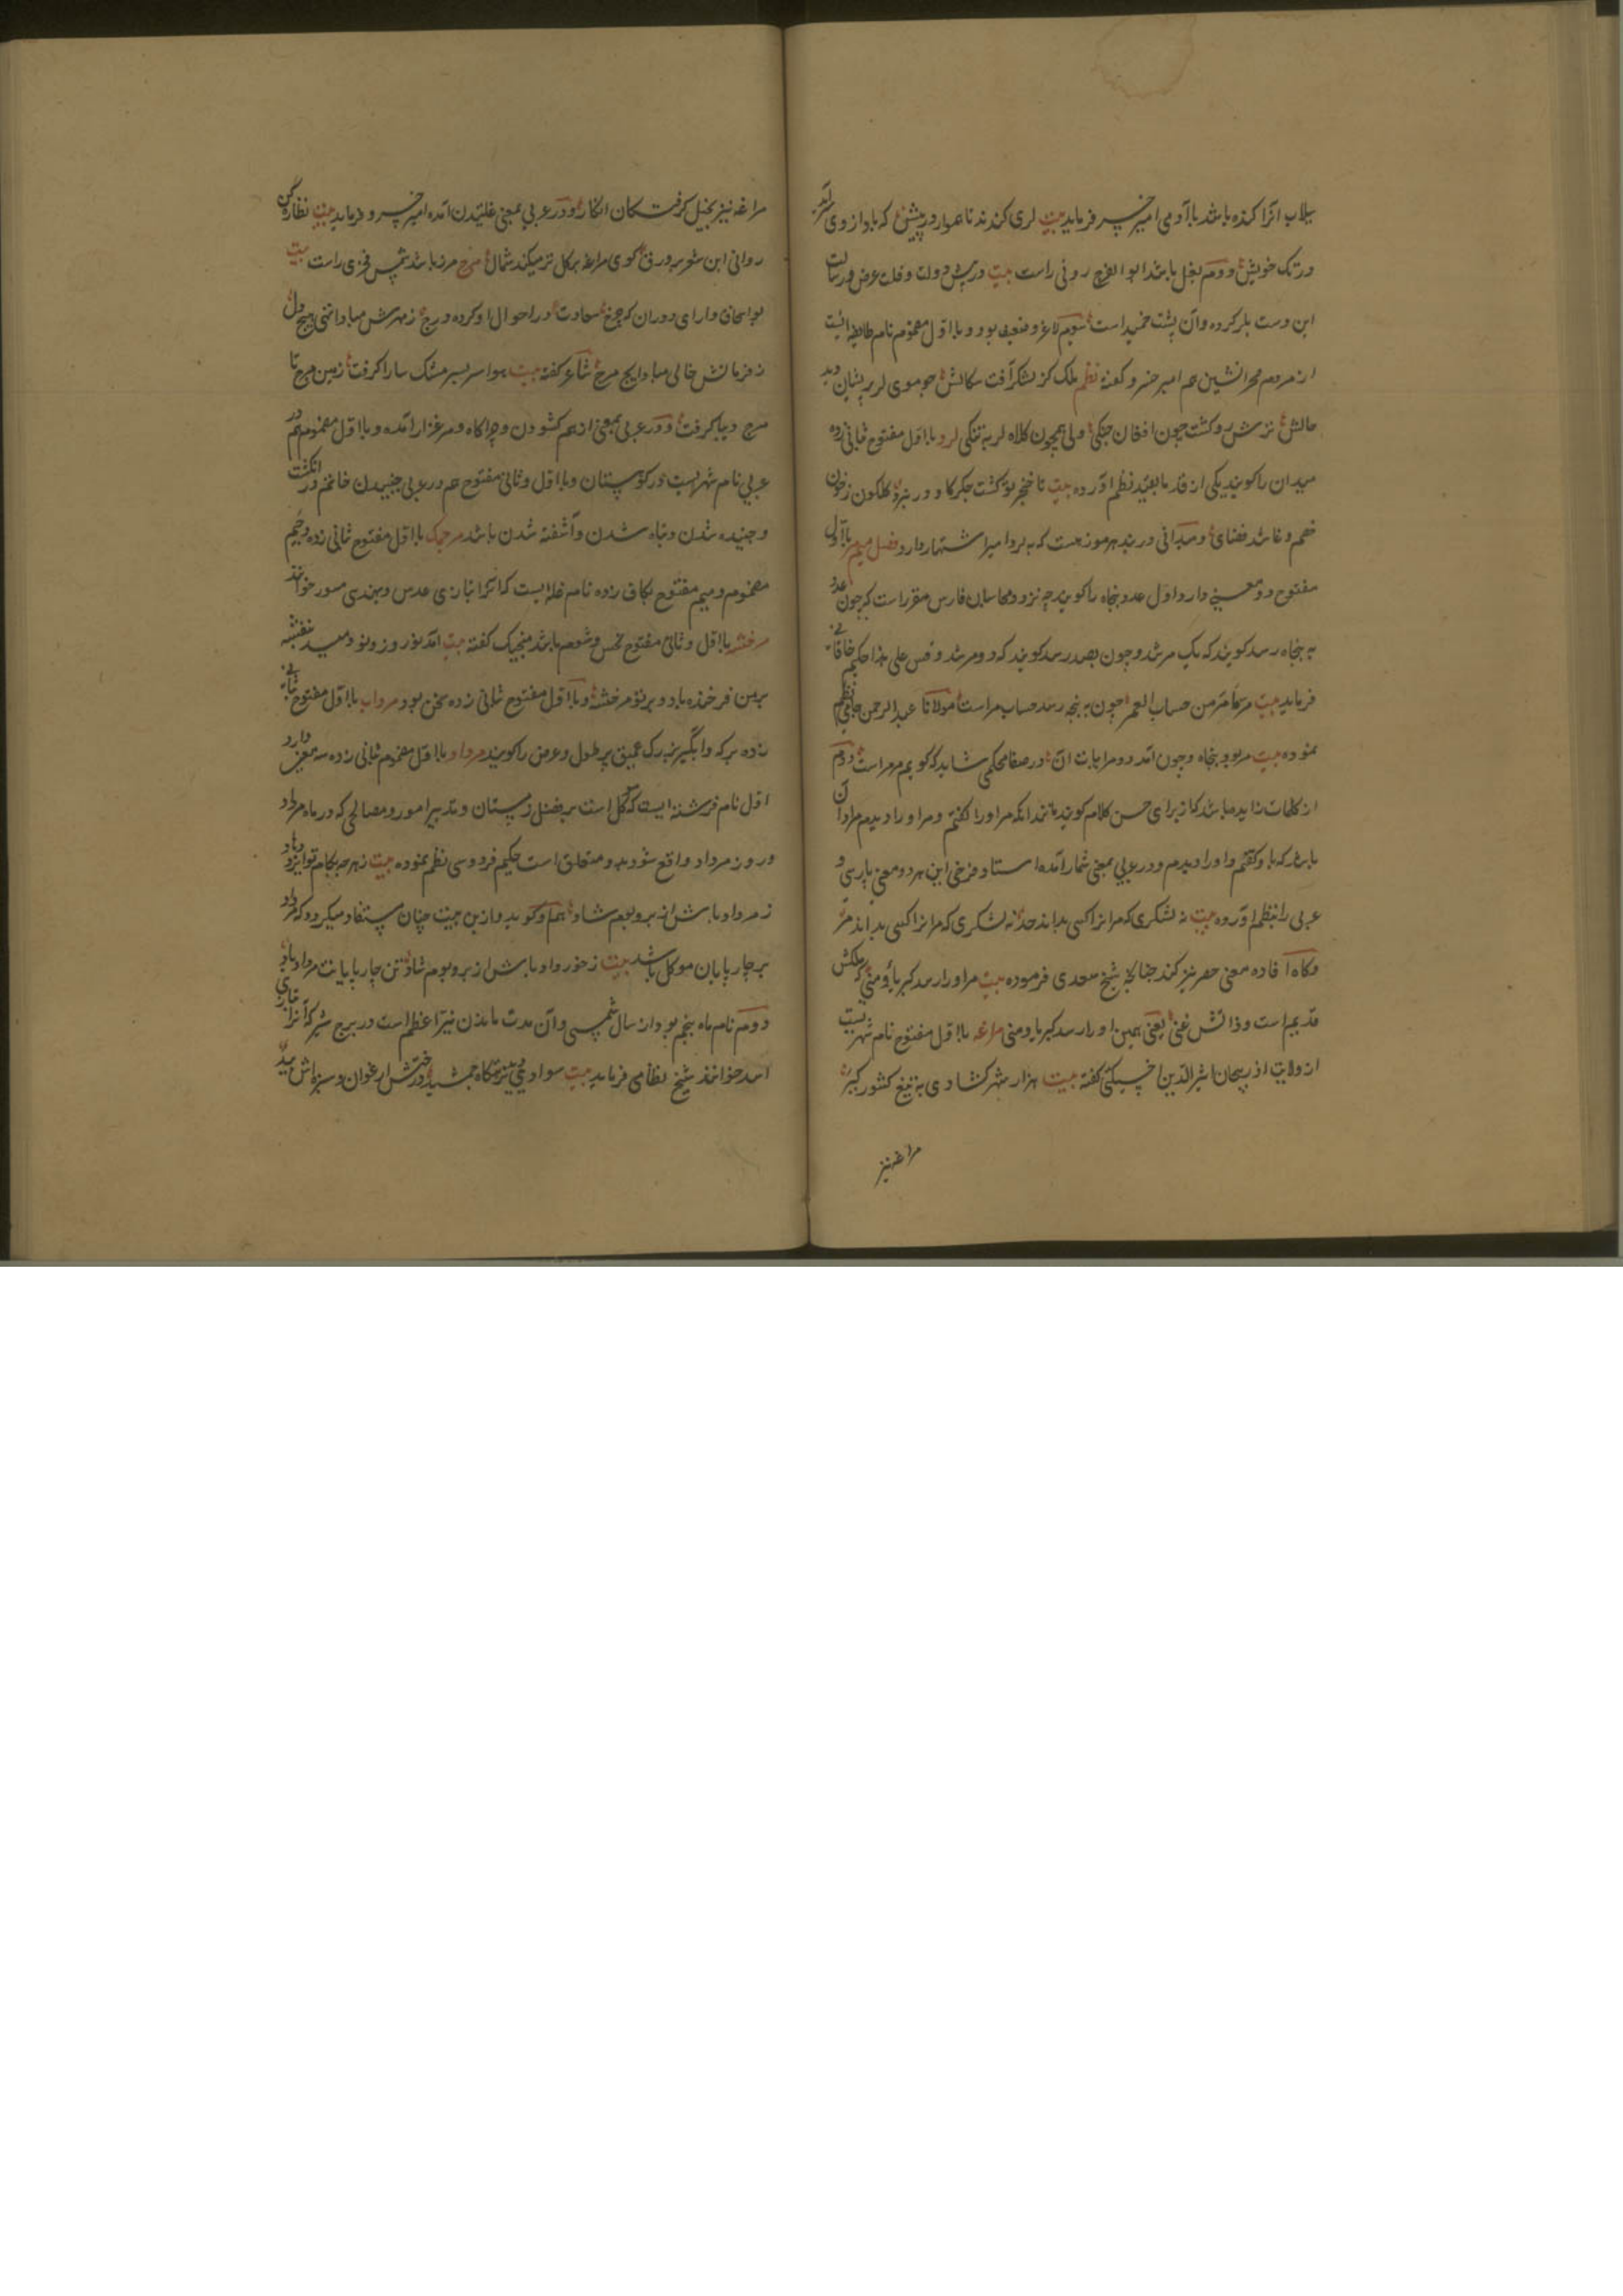 سیلاب انرا کنده باشد یا آدمی امیر خسرو فرماید بیت لری کندند ناهموار در پیش که باد از وی
در تک خویش دوم بغل باشد ابو الفرج رونی راست بیت در پیش دولت وفات عرض
این دست بلر کرده وآن پشت خمید است سیوم لاغر وضعیف بود و با اول مضموم نام طایفه ایست
از مردم صحرانشین هم امیر خسرو گفته نظم ملک کز لشکر آفت سکالش چو موی لر پریشان دید
حالش ترش رو گشت چون افغان جنگی ولی همچون کلاه لر به تنگی لرد با اول مفتوح بثانی زده
میدان را گویند یکی از قدما بقید نظم آورده بیت تا خنجر تو گشت جگرکاو در نبرد گلگون زخون
خصم وغا شد فضای لرد ومیدانی در بندر هرموز هست که به لرد امیر اشتهار دارد فصل میم مر با اول
مفتوح دو معنی دارد اول عدد پنجاه را گویند چه نزد محاسبان فارس مقرر است که چون عدد
به پنجاه رسد گویند که یک مر شد و چون بصد رسد گویند که دو مر شد وقس علی هذا حکیم خاقانی
فرماید بیت من حساب العمر چون به پنجه رسد حساب مراست مولانا عبد الرحمن جامی نظم
نموده بیت مر بود پنجاه وچون آمد دو مر ابیات آن در صفا محکمی شاید که گویم مرمر است دوم
از کلمات زاید باشد که از برای حسن کلام گویند مانند آنکه مر اورا گفتم و مر اورا دیدم مراد آن
باشد که باو گفتم و اورا دیدم ودر عربی بمعنی شمار آمده استاد فرخی این هر دو معنی پارسی و
عربی را بنظم آورده بیت نه لشکری که مر انرا کسی بداند حد نه لشکری که مر انرا کسی بداند مر
وگاه افاده معنی حصر نیز کند چنانچه شیخ سعدی فرموده بیت مر اورا رسد کبریا و منی که ملکش
قدیم است و ذاتش غنی یعنی همین اورا رسد کبریا ومنی مراغه با اول مفتوح نام شهریست
از ولایت آذربیجان اثیر الدین اخسیکتی گفته بیت هزار شهر گشادی به تیغ کشور گیر
مراغه نیز
مراغه نیز بخیل گرفت کان انگار ودر عربی بمعنی غلتیدن آمده امیر خسرو فرماید بیت نظاره کن
روانی این شعر بر ورق گوی مراغه بر گل تر میکند شمال مرج مرز باشد شمس فخری راست بیت
بواسحاق دارای دوران که چرخ سعادت در احوال او کرده درج زمهرش مبادا تنی هیچ دل
زفرمانش خالی مبادا هیچ مرج شاعر گفته بیت هوا سر بسر مشک سارا گرفت زمین مرج تا
مرج دیبا گرفت ودر عربی بمعنی از هم گشودن وچراگاه ومرغزار آمده وبا اول مضموم هم در
عربی نام شهریست در کوهستان وبا اول وثانی مفتوح هم در عربی جنبیدن خاتم در انگشت
وجنبیده شدن وتباه شدن وآشفته شدن باشد مرجمک با اول مفتوح ثانی زده وجیم
مضموم ومیم مفتوح بکاف زده نام غله ایست که انرا بتازی عدس وبهندی مسور خوانند
مرخشه با اول وثانی مفتوح نحس وشوم باشد منجیک گفته بیت آمد نوروز ونو دمید بنفشه
بر من فرخنده باد وبر تو مرخشه وبا اول مفتوح ثانی زده مخنث بود مرداب با اول مفتوح بثانی
زده برکه وآبگیر بزرگ عمیق پر طول وعرض را گویند مرداد با اول مضموم ثانی زده سه معنی دارد
اول نام فرشته ایست که موکل است بر فصل زمستان وتدبیر امور ومصالحی که در ماه مرداد
وروز مرداد واقع شود بدو متعلق است حکیم فردوسی نظم نموده بیت زهر بد بکام تو ایزد دهاد
زمرداد باش از بر وبوم شاد هم او گوید وازین بیت چنان مستفاد میگردد که مرداد
بر چارپایان موکل باشد بیت زخورداد باش از بر وبوم شاد تن چارپایانت مرداد باد
دوم نام ماه پنجم بود از سال شمسی وآن مدت ماندن نیر اعظم است در برج شیر که آنرا بتازی
اسد خوانند شیخ نظامی فرماید بیت سوادی بزمگاه جمشید درختش ارغوان وسبزه اش بید